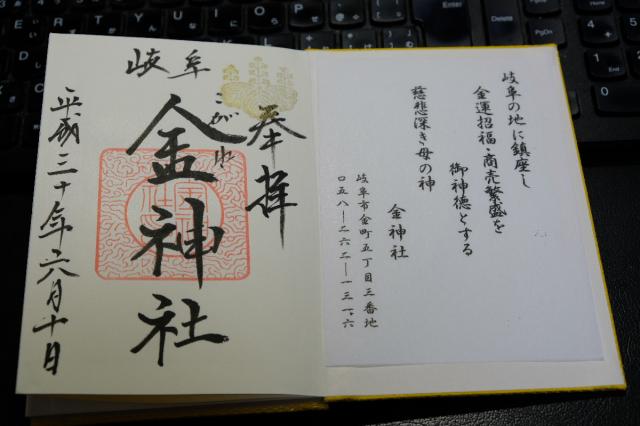 奉拝
岐阜
こがね
金神社
平成三十年六月十日
岐阜の地に鎮座し
金運招福・商売繁盛を
御神徳とする
慈悲深き母の神
金神社
岐阜市金町五丁目三番地
〇五八―二六二―一三一六
Enter
Delete
End
PgDn
PgUp